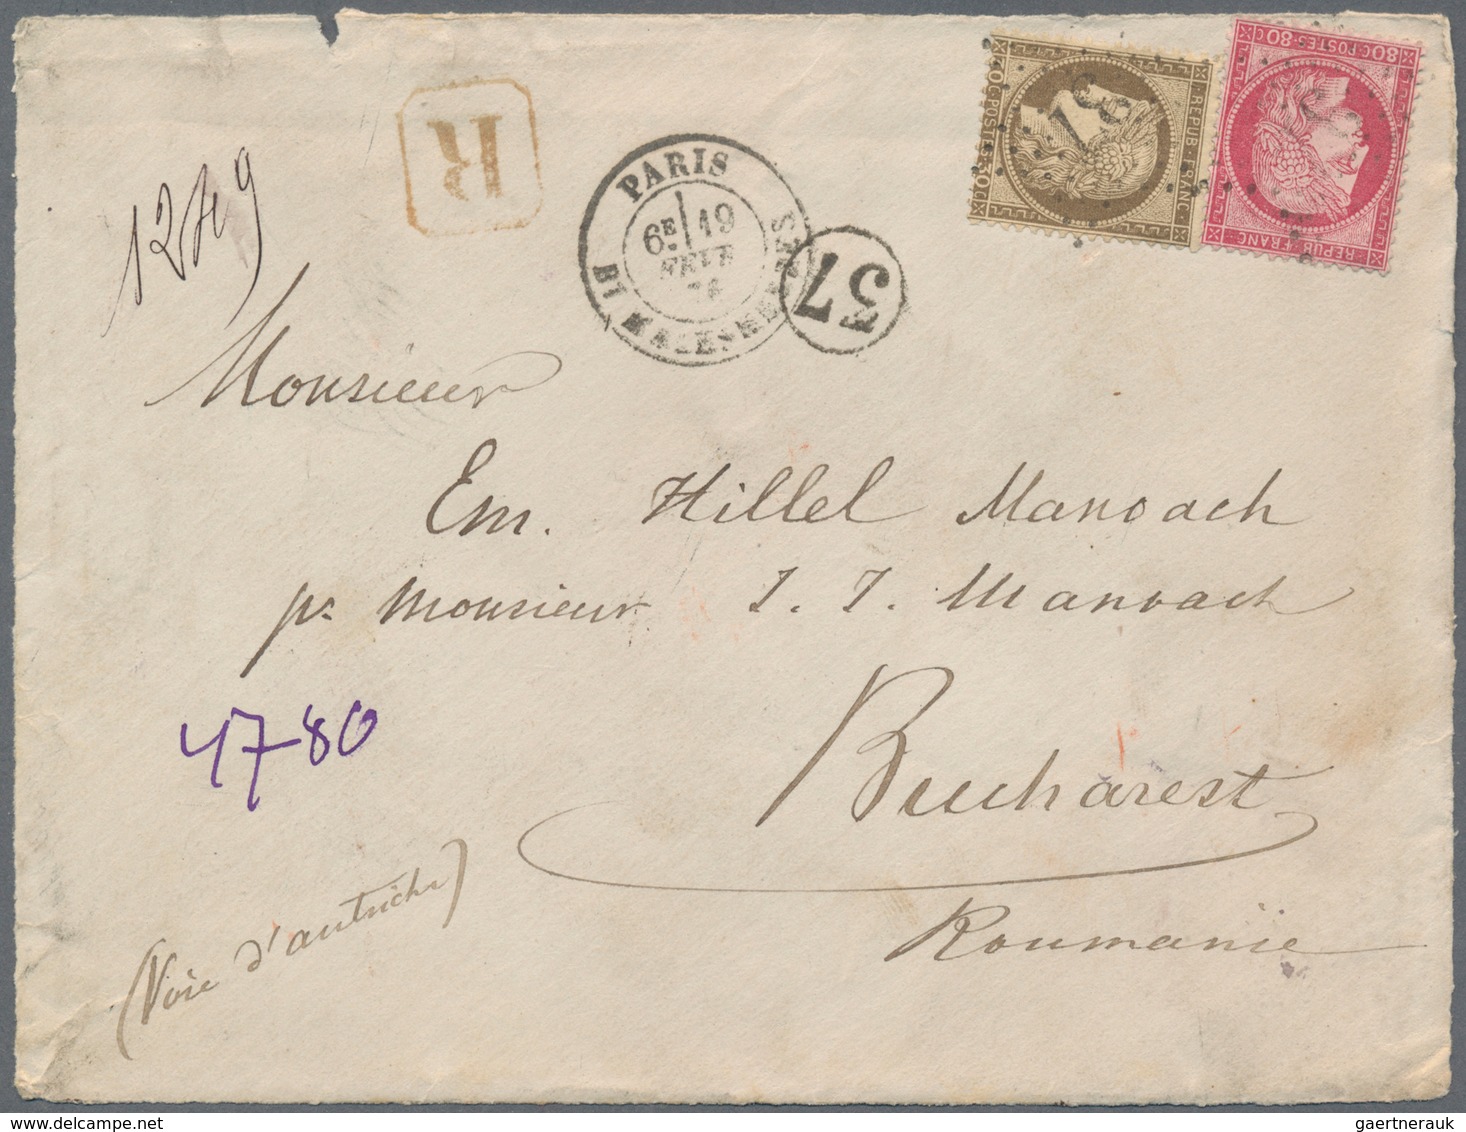 1249
R
PARIS
6E 19
FEVR
74
BD MALESHERBES
37
30C·POSTES·30C
REPUB·FRANC·
37
80C·POSTES·80C
REPUB·FRANC·
Monsieur
Em. Hillel Manoach
pr Monsieur I. J. Manoach
4780
Bucharest
(Voie d'autriche)
Roumanie
gaertnerauk